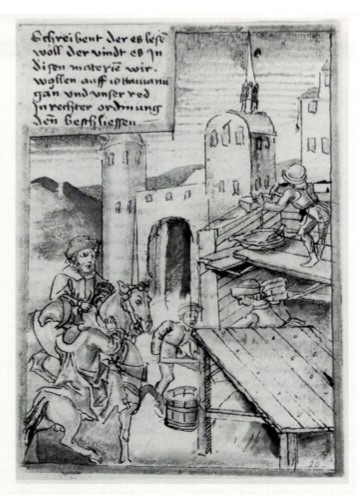 Schreibent der es lesē
woll der vindt es In
disen materiē wir
wollen auff
gan vnd vnser red
In rechter ordnung
den beschliessen
20